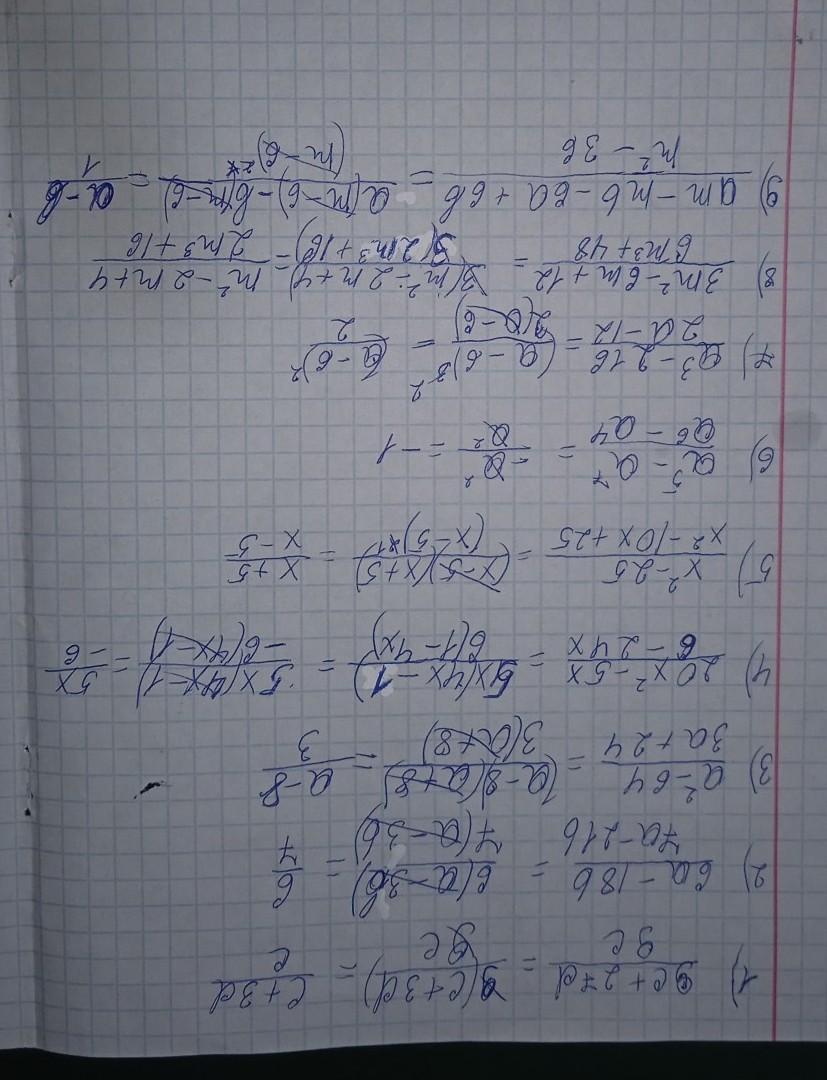 1) (9c + 27d)/(9c) = (9(c + 3d))/(9c) = (c + 3d)/c
2) (6a - 18b)/(7a - 21b) = (6(a - 3b))/(7(a - 3b)) = 6/7
3) (a² - 64)/(3a + 24) = ((a - 8)(a + 8))/(3(a + 8)) = (a - 8)/3
4) (20x² - 5x)/(6 - 24x) = (5x(4x - 1))/(6(1 - 4x)) = (5x(4x - 1))/(-6(4x - 1)) = 5x/-6
5) (x² - 25)/(x² - 10x + 25) = ((x - 5)(x + 5))/((x - 5)²) = (x + 5)/(x - 5)
6) (a⁵ - a⁷)/(a⁶ - a⁴) = -a²/a² = -1
7) (a³ - 216)/(2a - 12) = (a - 6)³/(2(a - 6)) = (a - 6)²/2
8) (3m² - 6m + 12)/(6m³ + 48) = (3(m² - 2m + 4))/(3(2m³ + 16)) = (m² - 2m + 4)/(2m³ + 16)
9) (am - mb - 6a + 6b)/(m² - 36) = (a(m - 6) - b(m - 6))/((m - 6)²) = (a - b)/1